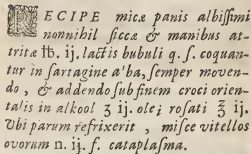 RECIPE micæ panis albiſſimi
nonnihil ſiccæ & manibus at-
tritæ ℔. ij. lactis bubuli q. ſ. coquan-
tur in ſartagine alba, ſemper moven-
do, & addendo ſub finem croci orien-
talis in alkool ʒ ij. olei roſati ℥ ij.
Vbi parum refrixerit, miſce vitellos
ovorum n. ij. f. cataplaſma.